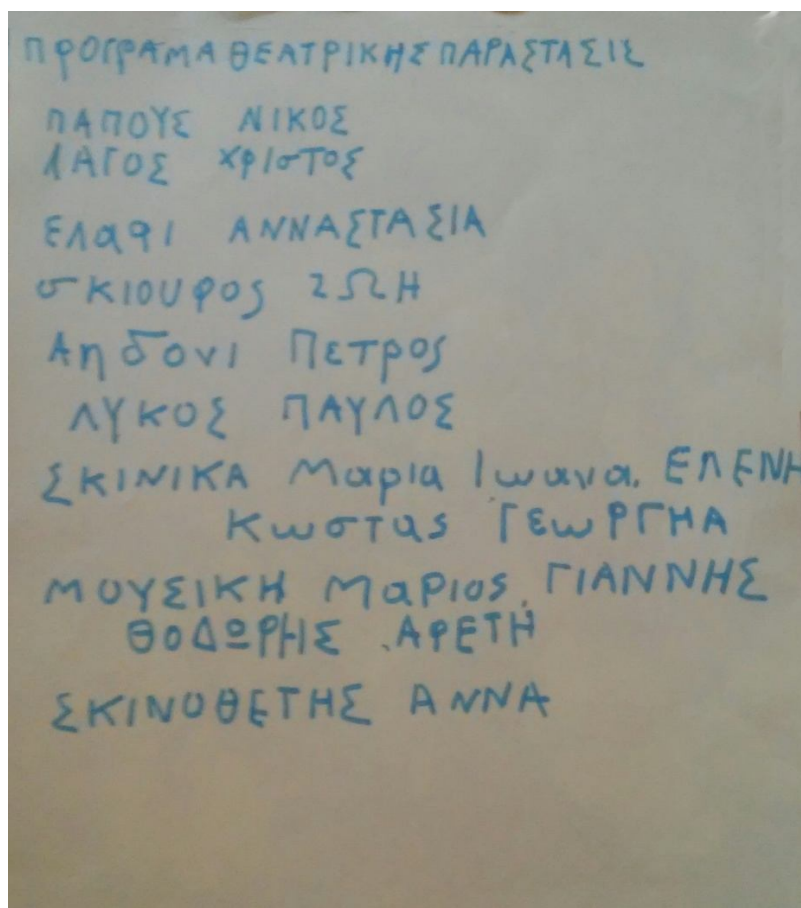 ΠΡΟΓΡΑΜΑ ΘΕΑΤΡΙΚΗΣ ΠΑΡΑΣΤΑΣΙΣ
ΠΑΠΟΥΣ ΝΙΚΟΣ
ΛΑΓΟΣ χΡΙσΤΟΣ
ΕΛαφΙ ΑΝΝΑΣΤΑΣΙΑ
σΚΙΟυφος ΖΩΗ
Αηδονι Πετρος
ΛΥΚΟΣ ΠΑΥΛΟΣ
ΣΚΙΝΙΚΑ Μαρια Ιωανα. ΕΛΕΝΗ
Κωστας ΓΕωΡΓΗΑ
ΜΟΥΣΙΚΗ ΜαΡιος, ΓΙΑΝΝΗΣ
ΘΟΔΩΡΗΣ .ΑΡΕΤΗ
ΣΚΙΝΟΘΕΤΗΣ ΑΝΝΑ